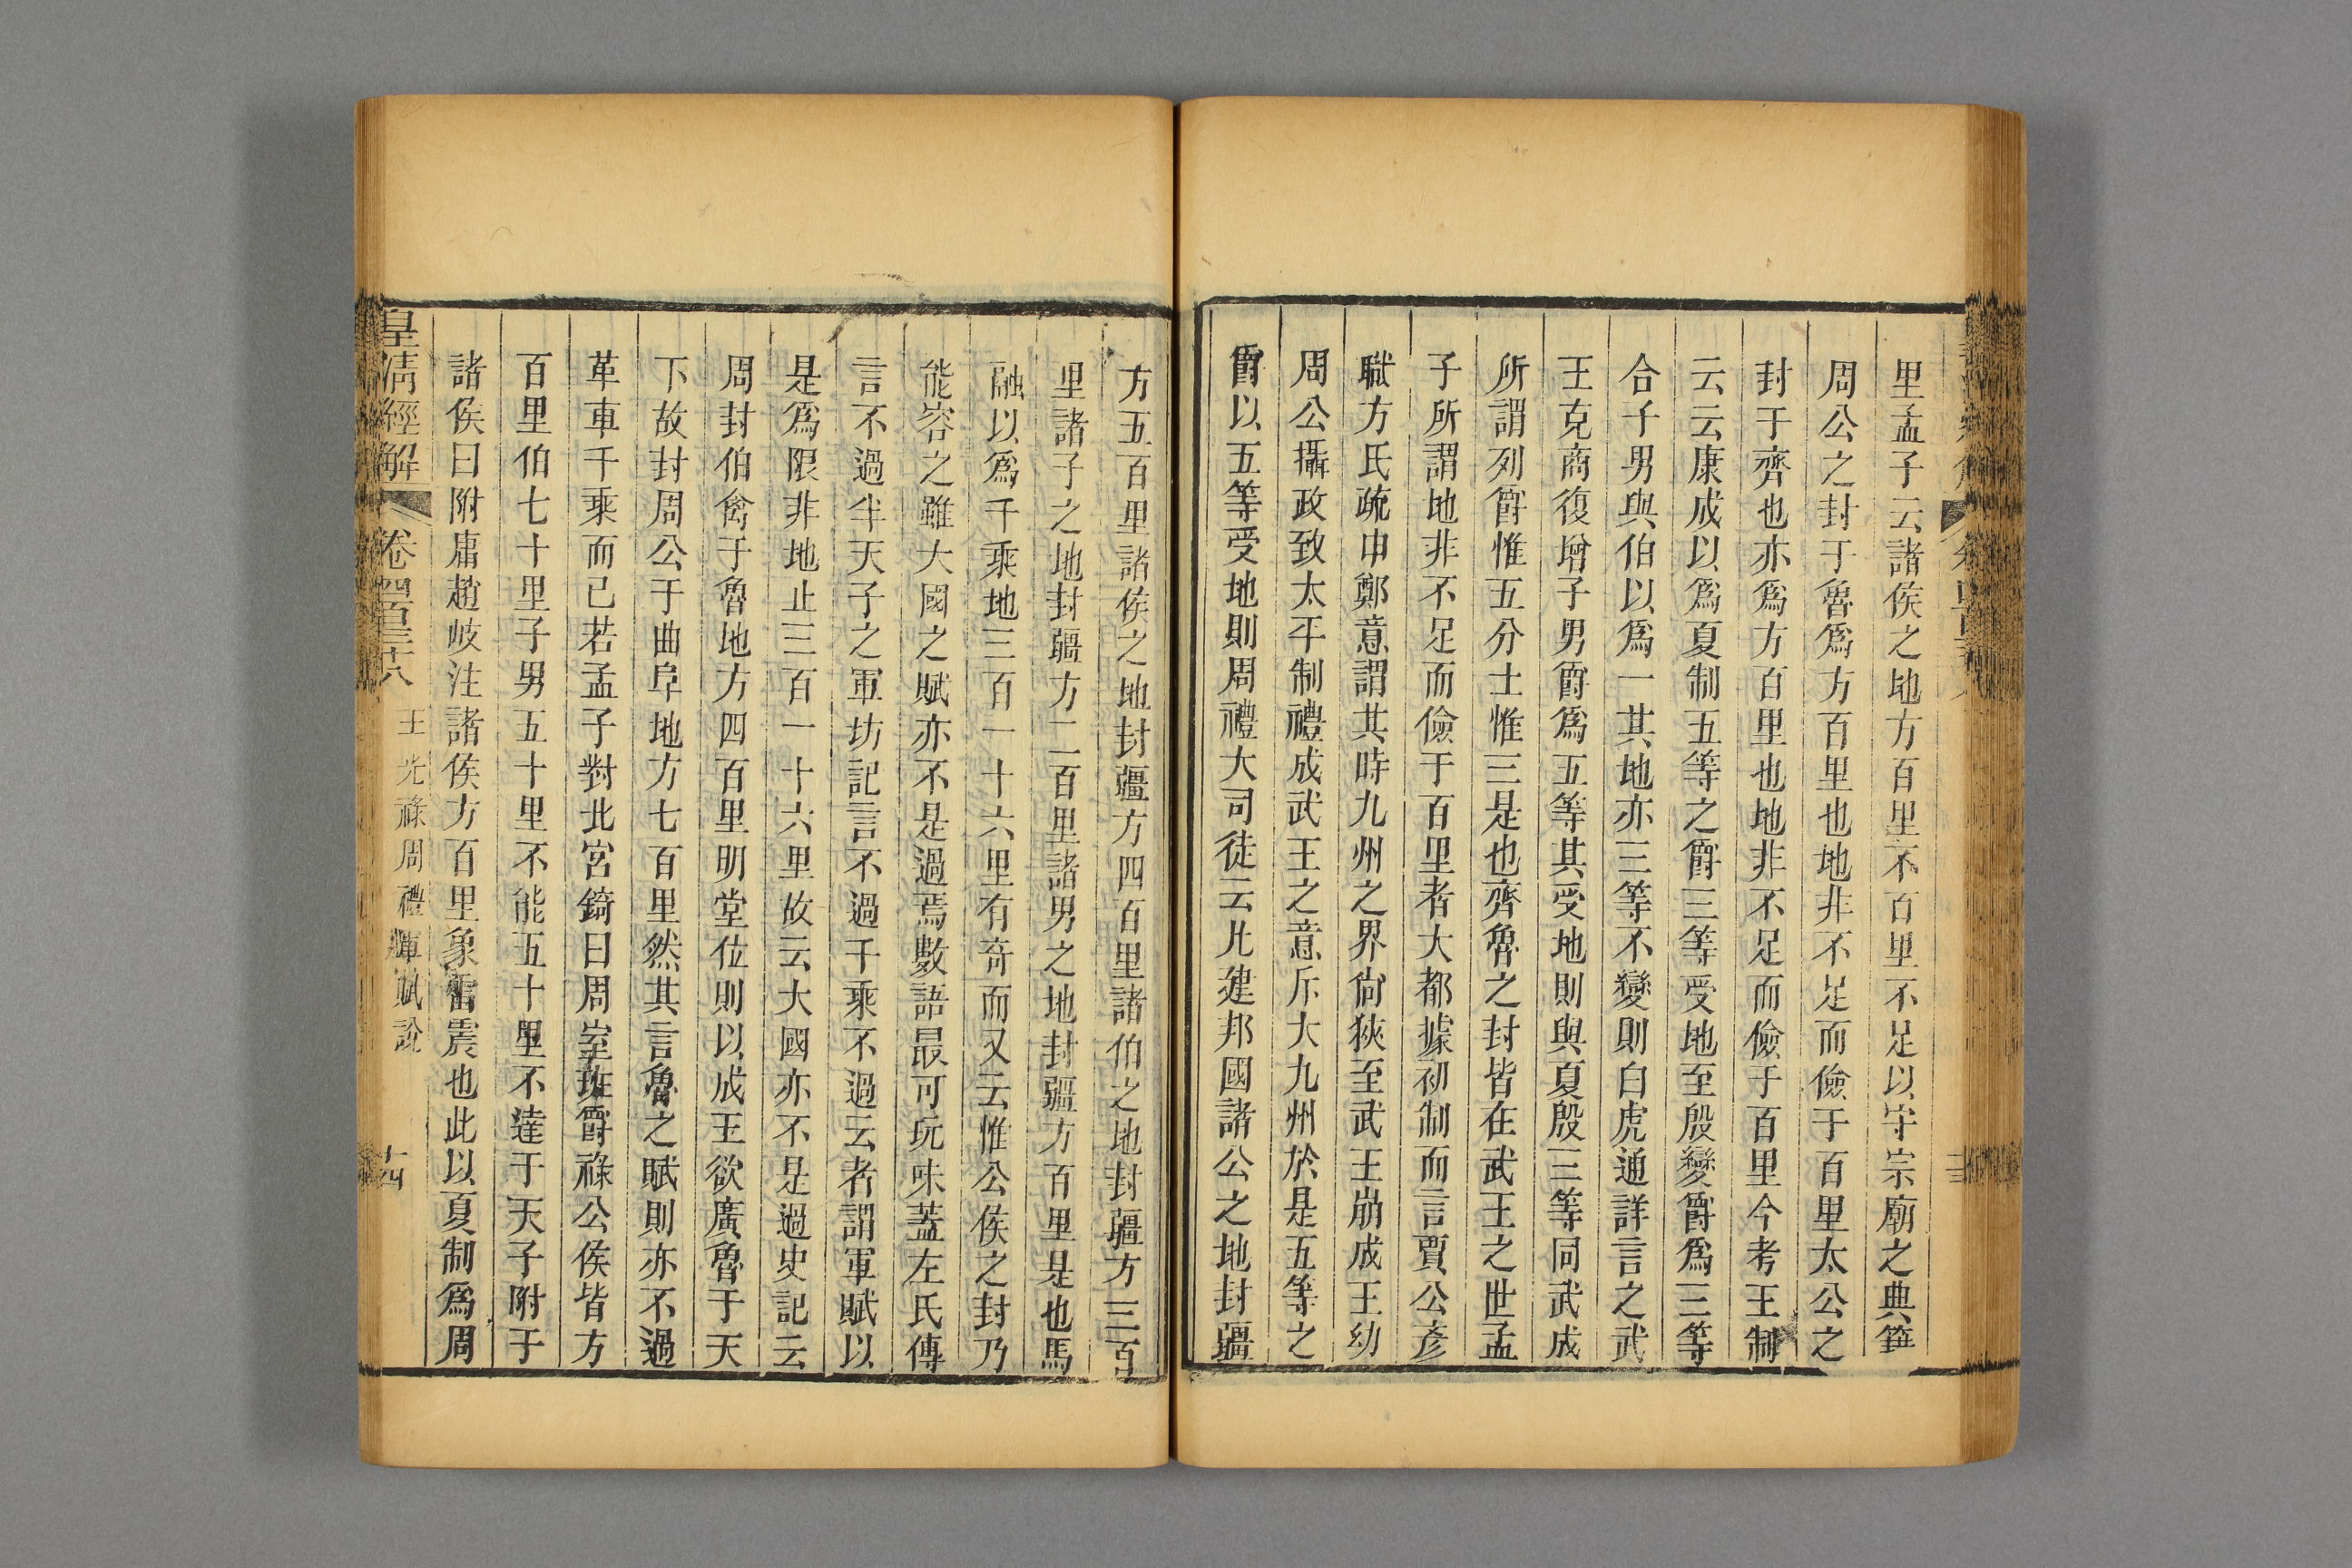 里孟子云諸侯之地方百里不百里不足以守宗廟之典籍
周公之封于魯爲方百里也地非不足而儉于百里太公之
封于齊也亦爲方百里也地非不足而儉于百里今考王制
云云康成以爲夏制五等之爵三等受地至殷變爵爲三等
合子男與伯以爲一其地亦三等不變則白虎通詳言之武
王克商復增子男爵爲五等其受地則與夏殷三等同武成
所謂列爵惟五分土惟三是也齊魯之封皆在武王之世孟
子所謂地非不足而儉于百里者大都據初制而言賈公彥
職方氏疏申鄭意謂其時九州之界尙狹至武王崩成王幼
周公攝政致太平制禮成武王之意斥大九州於是五等之
爵以五等受地則周禮大司徒云凡建邦國諸公之地封疆
方五百里諸侯之地封疆方四百里諸伯之地封疆方三百
里諸子之地封疆方二百里諸男之地封疆方百里是也馬
融以爲千乘地三百一十六里有奇而又云惟公侯之封乃
能容之雖大國之賦亦不是過焉數語最可玩味蓋左氏傳
言不過半天子之軍坊記言不過千乘不過云者謂軍賦以
是爲限非地止三百一十六里故云大國亦不是過史記云
周封伯禽于魯地方四百里明堂位則以成王欲廣魯于天
下故封周公于曲阜地方七百里然其言魯之賦則亦不過
革車千乘而已若孟子對北宮錡曰周室班爵祿公侯皆方
百里伯七十里子男五十里不能五十里不達于天子附于
諸侯曰附庸趙岐注諸侯方百里象雷震也此以夏制爲周
皇清經解 卷四百三十八 王光祿周禮軍賦說 十四